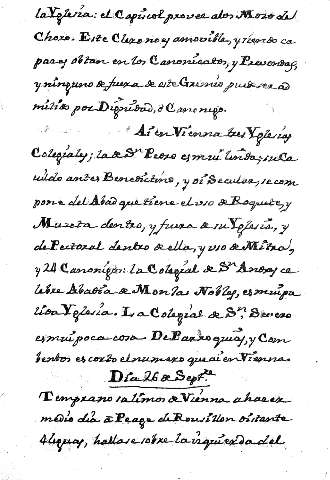 la Yglesia: el Capiscol provee a los Mozos de
Choro. Este Clero no es amovible, y siendo ca
paces obtan en los Canonicatos, y Prevendas,
y ninguno de fuera de este Gremio puede ser ad
mitido por Dignidad, ó Canonigo.
Ai en Vienna tres Yglesias
Colegiales; la de Sn. Pedro es mui linda; su Ca
vildo antes Benedictino, y oi Secular, se com
pone del Abad que tiene el uso de Roquete, y
Muzeta dentro, y fuera de su Yglesia, y
de Pectoral dentro de ella, y uso de Mitra,
y 24 Canonigos: la Colegial de Sn. Andres ce
lebre Abadia de Monjas Nobles, es mui pu
lida Yglesia. La Colegial de Sn. Severo
es mui poca cosa. De Parroquias, y Com
bentos es corto el numero que ai en Vienna.
Dia 26 de Septre.
Temprano salimos de Vienna a hazer
medio dia á Peage de Rousillon distante
4 leguas, hallase sobre la izquierda del